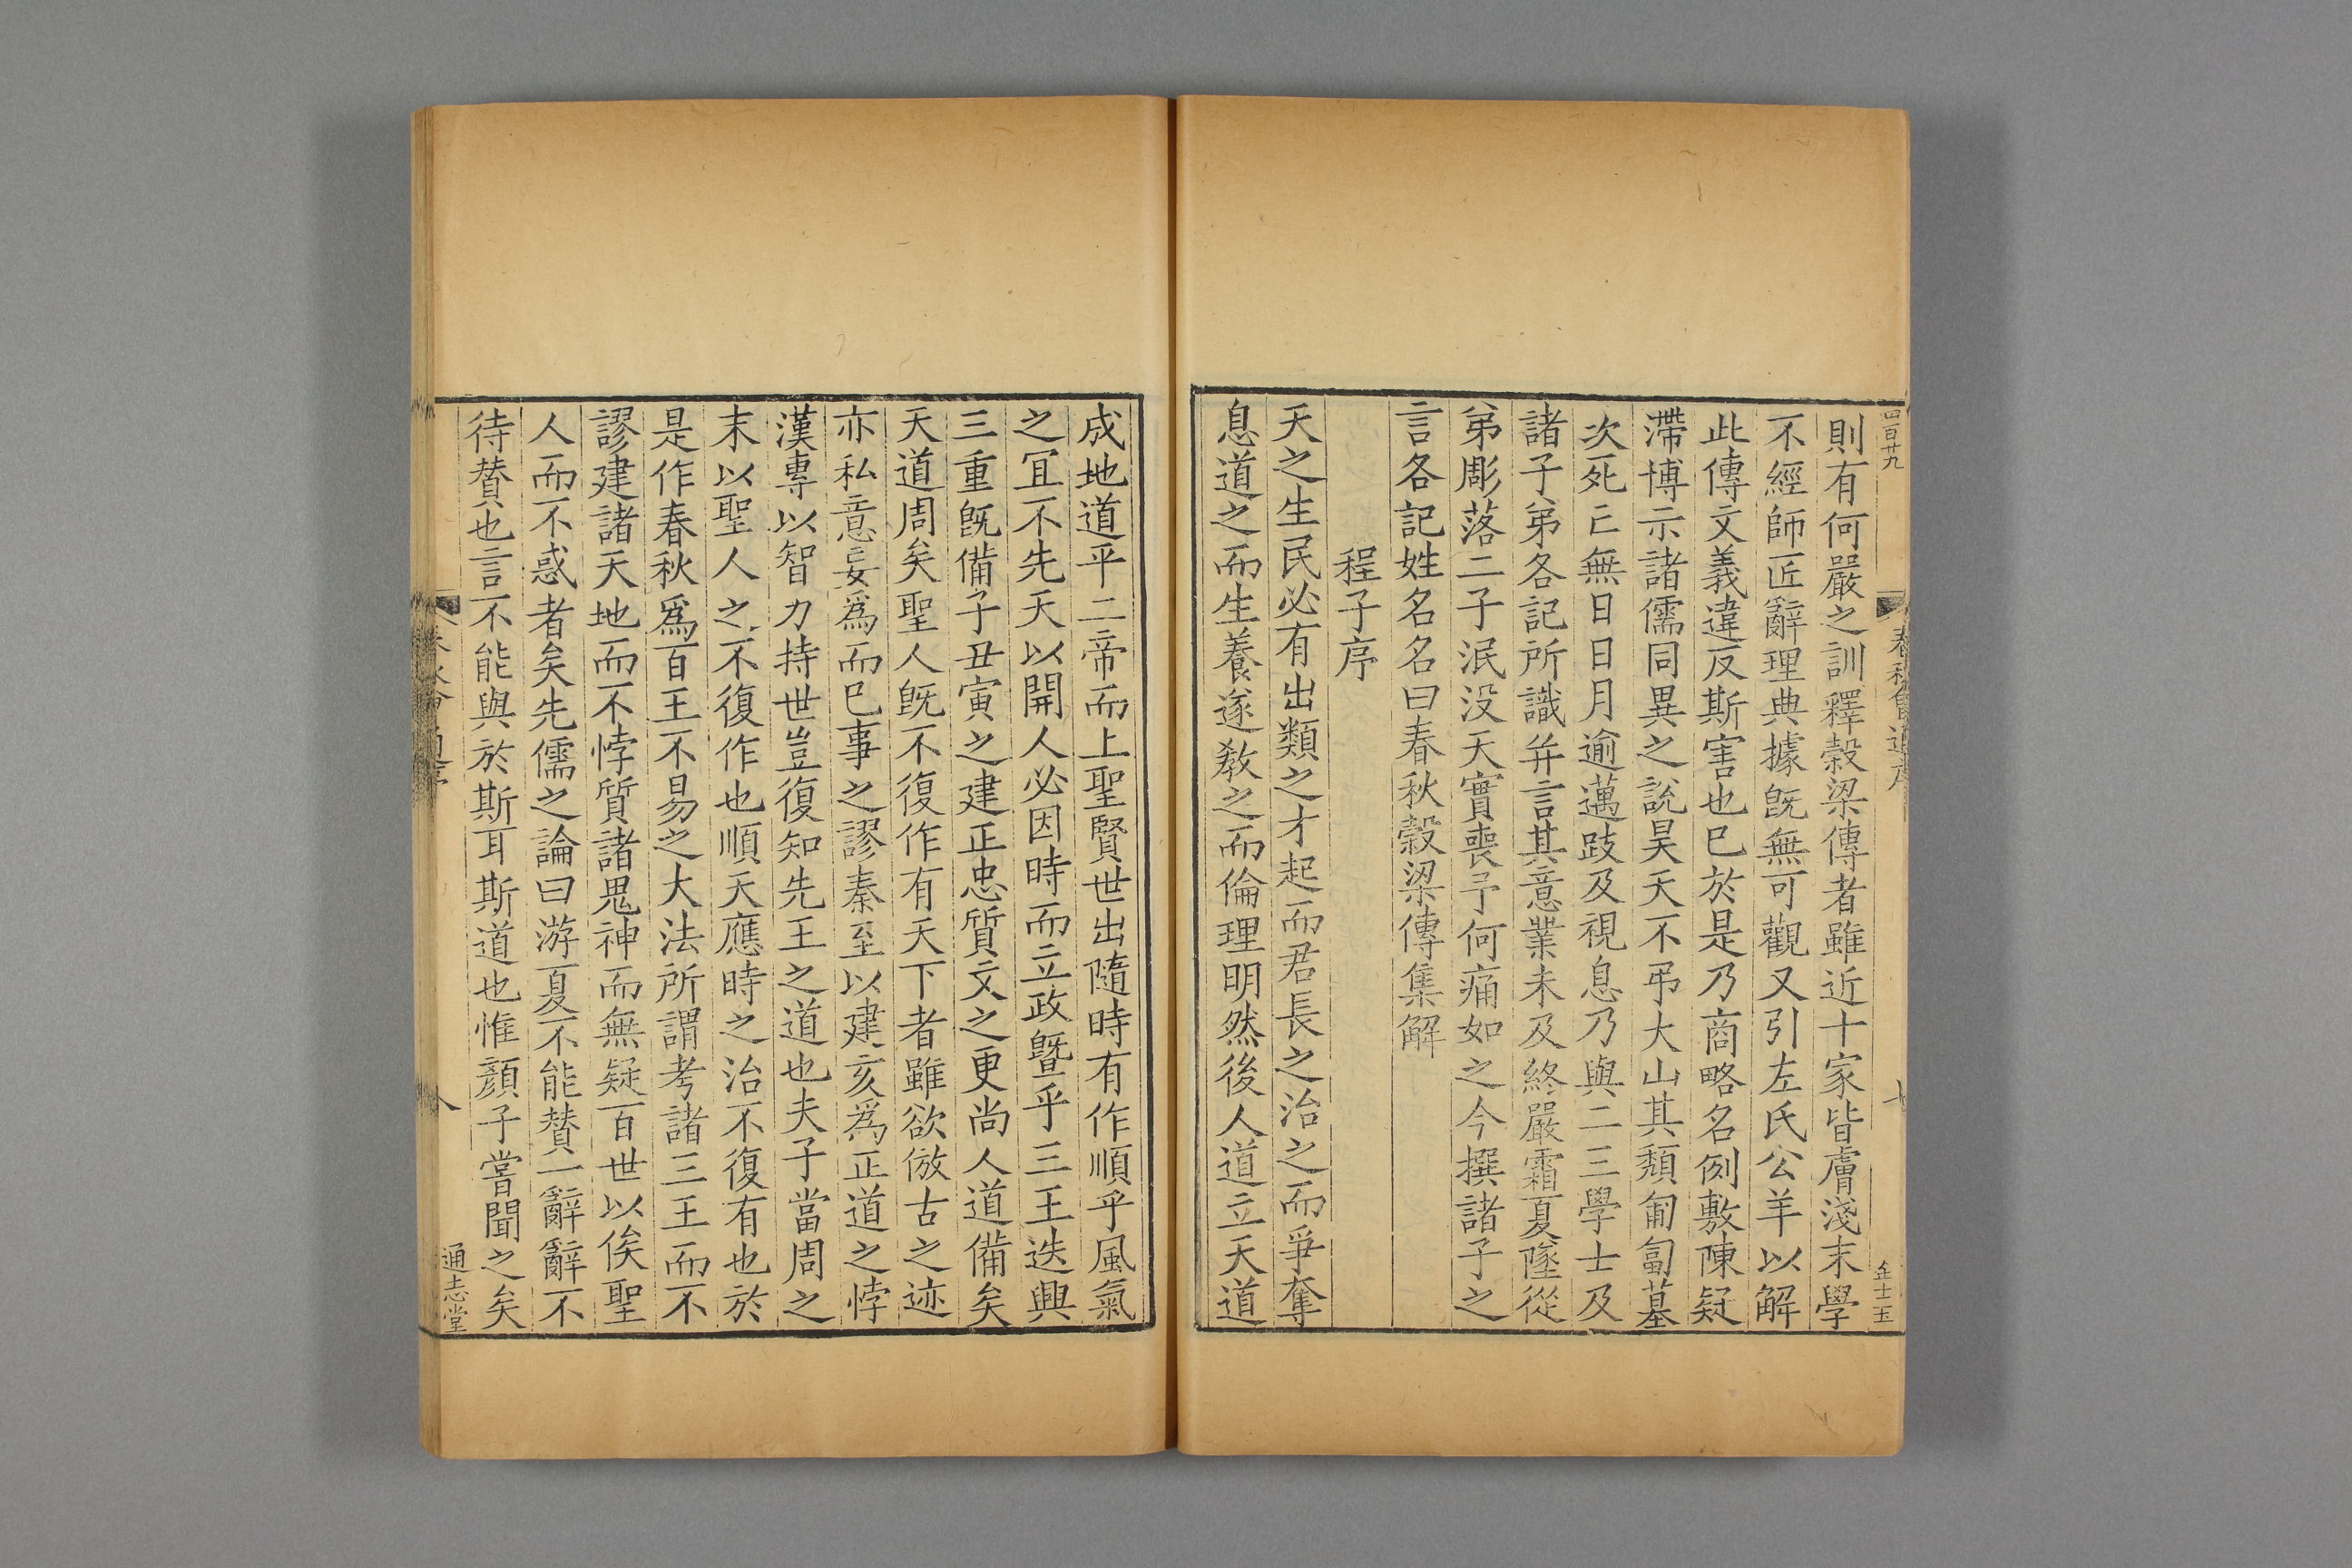 四百廿九
春秋會通序
七
則有何嚴之訓釋穀梁傳者雖近十家皆膚淺末學
不經師匠辭理典據旣無可觀又引左氏公羊以解
此傳文義違反斯害也已於是乃商略名例敷陳疑
滯博示諸儒同異之說昊天不弔大山其頹匍匐墓
次死亡無日日月逾邁跂及視息乃與二三學士及
諸子弟各記所識并言其意業未及終嚴霜夏墜從
弟彫落二子泯没天實喪予何痛如之今撰諸子之
言各記姓名名曰春秋穀梁傳集解
程子序
天之生民必有出類之才起而君長之治之而爭奪
息道之而生養遂教之而倫理明然後人道立天道
成地道平二帝而上聖賢世出隨時有作順乎風氣
之宜不先天以開人必因時而立政曁乎三王迭興
三重旣備子丑寅之建正忠質文之更尚人道備矣
天道周矣聖人旣不復作有天下者雖欲倣古之迹
亦私意妄爲而已事之謬秦至以建亥爲正道之悖
漢專以智力持世豈復知先王之道也夫子當周之
末以聖人之不復作也順天應時之治不復有也於
是作春秋爲百王不易之大法所謂考諸三王而不
謬建諸天地而不悖質諸鬼神而無疑百世以俟聖
人而不惑者矣先儒之論曰游夏不能贊一辭辭不
待贊也言不能與於斯耳斯道也惟顏子嘗聞之矣
八
通志堂